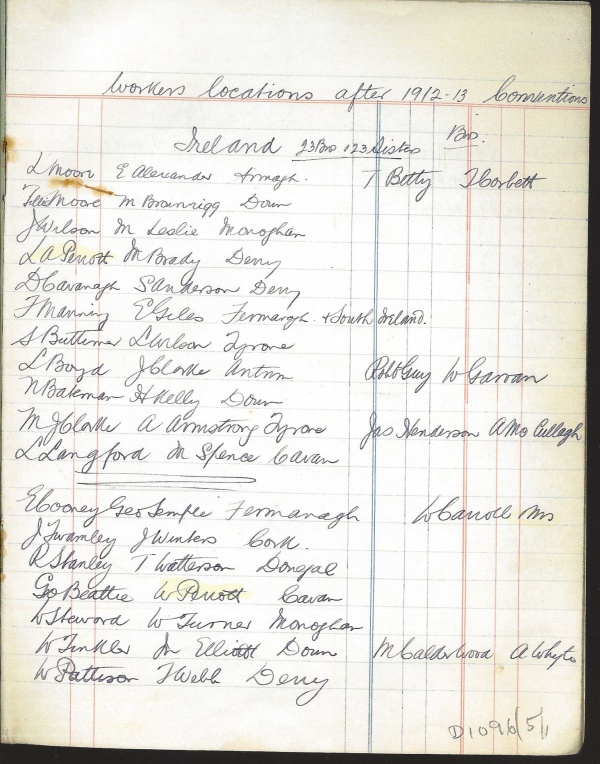 Workers locations after 1912-13 Conventions
Ireland 23 Bro 123 Sisters Bro.
L Moore E Alexander Armagh. T Betty J Corbett
Tillie Moore M Brannigg Down
J Wilson M Leslie Monoghan
L A Perrott M Brady Derry
D Cavanagh S Anderson Derry
F Manning E Giles Fermangh. + South Ireland.
S Buttimer L Wilson Tyrone
L Boyd J Clarke Antrim Robt Guy W Garran
N Bateman H Kelly Down
M J Clarke A Armstrong Tyrone Jas Henderson A Mc Cullagh
L Langford M Spence Cavan
E Cooney Geo Semple Fermanagh W Carroll Mrs
J Twamley J Winters Cork.
R Stanley T Watterson Donegal
Geo Beattie W Perrott Cavan
W Steward W Turner Monoghan
W Tinkler M Elliott Down M Calderwood A Whyte
W Pattison F Webb Derry
D1096/5/1